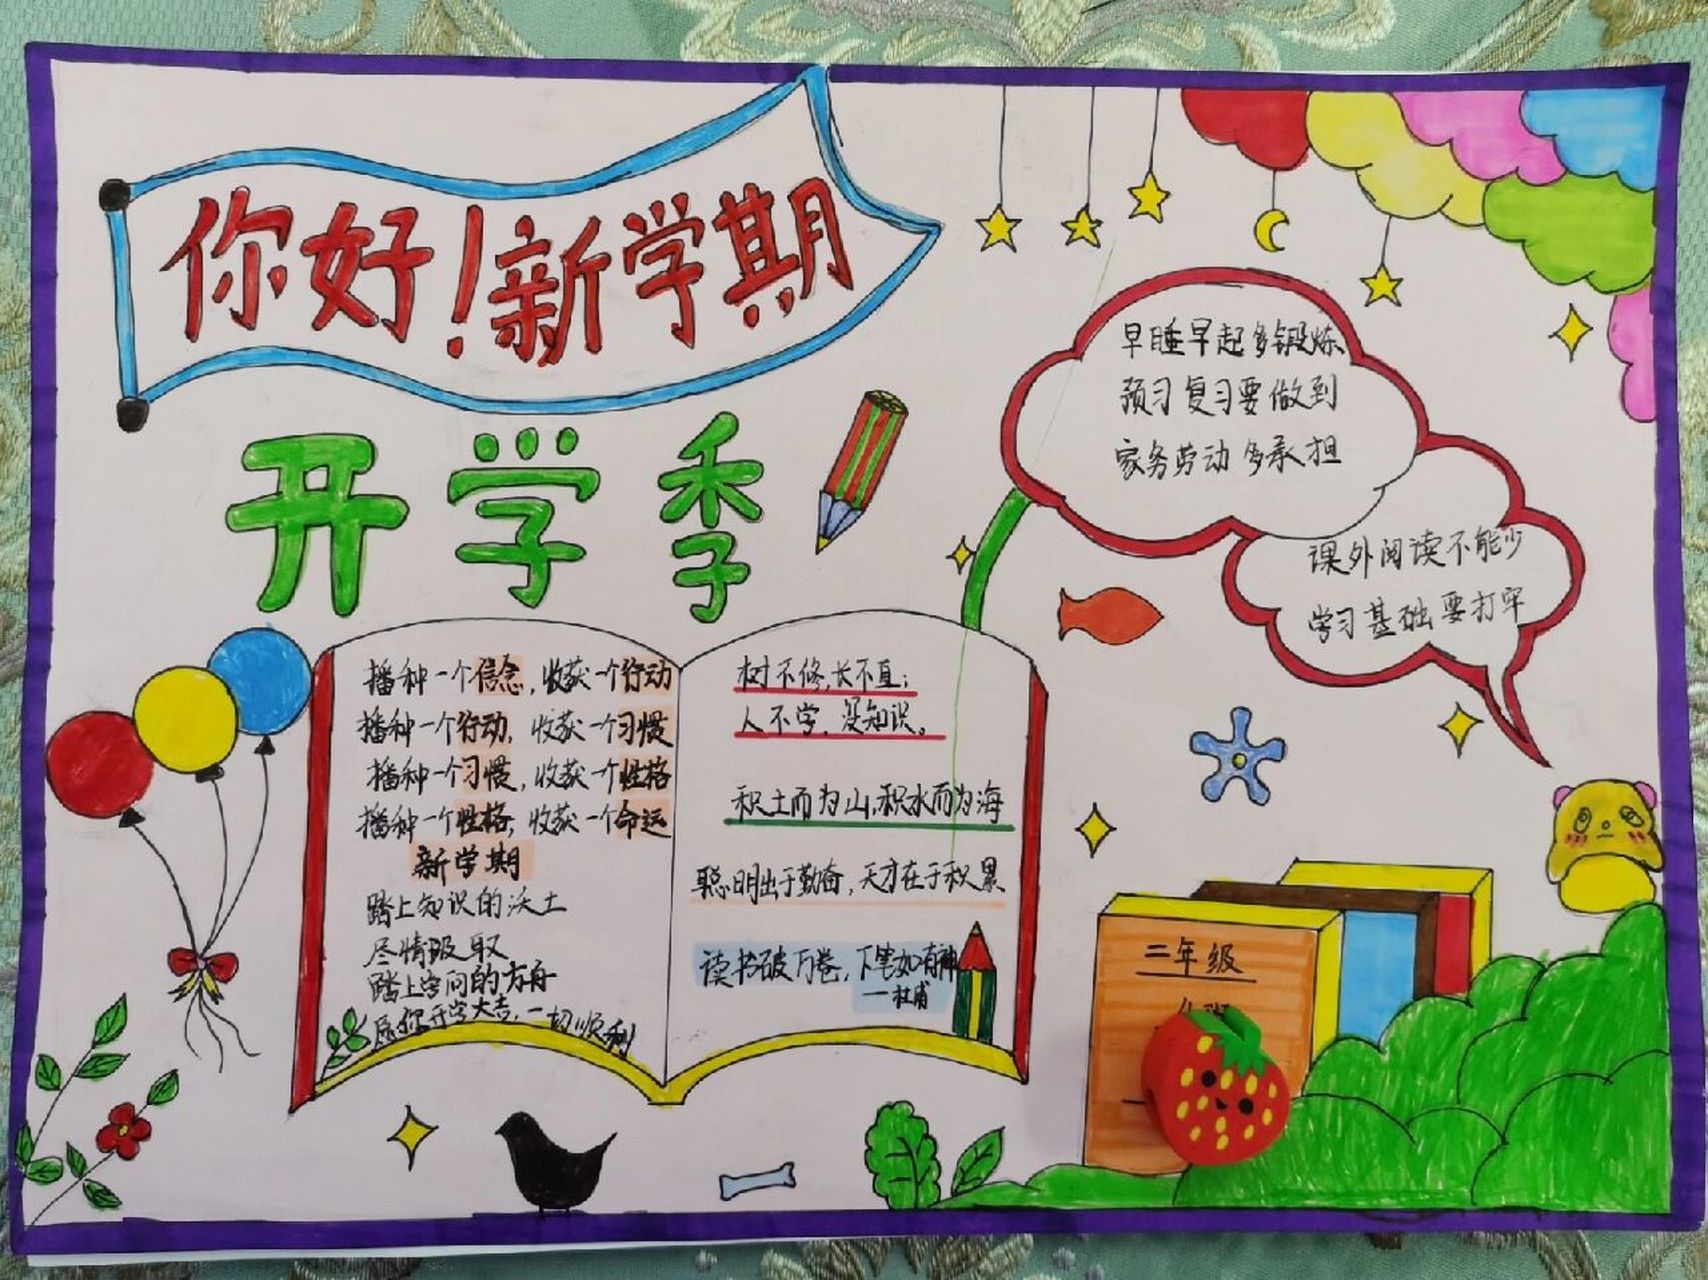 你好！新学期
开学季
早睡早起多锻炼
预习复习要做到
家务劳动多承担
课外阅读不能少
学习基础要打牢
播种一个信念，收获一个行动
播种一个行动，收获一个习惯
播种一个习惯，收获一个性格
播种一个性格，收获一个命运
新学期
踏上知识的沃土
尽情吸取
踏上学问的方舟
愿你开学大吉，一切顺利
树不修，长不直；
人不学，没知识。
积土而为山，积水而为海
聪明出于勤奋，天才在于积累
读书破万卷，下笔如有神
—杜甫
二年级